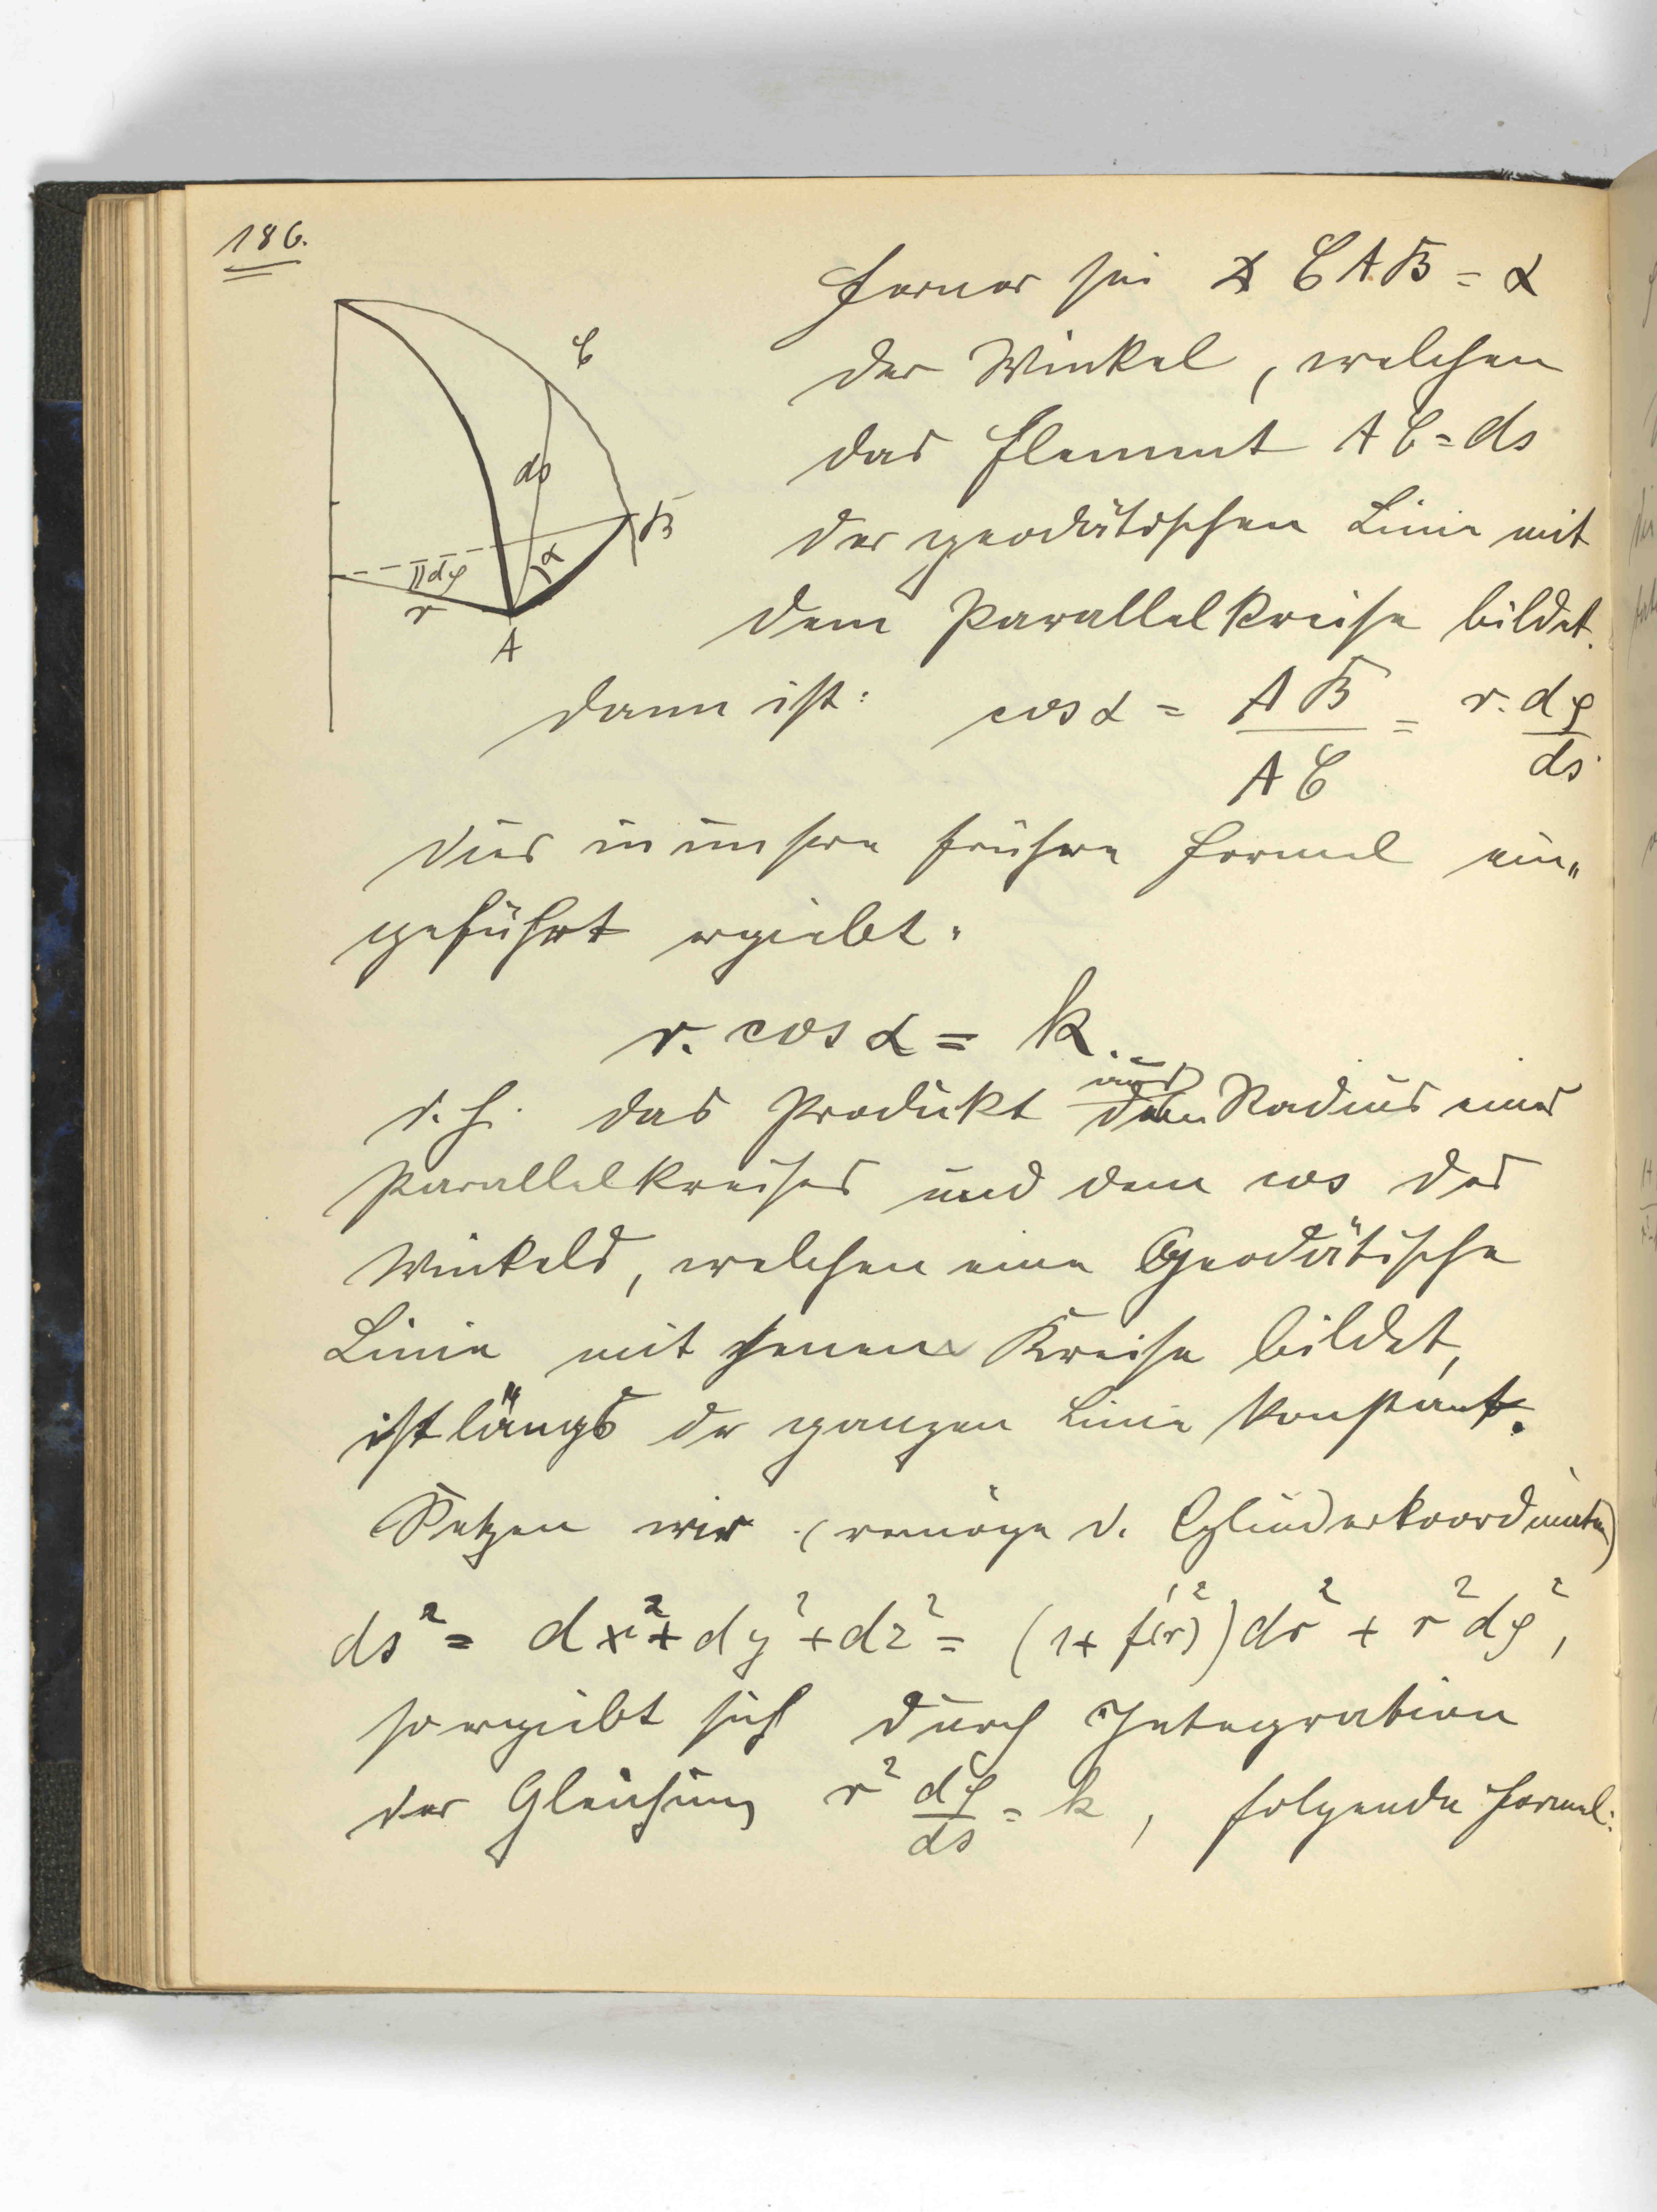 186.
Ferner sei ∢ CAB = α
der Winkel, welchen
das Element AC = ds
der geodätischen Linie mit
dem Parallelkreise bildet.
C
ds
B
α
dφ
r
A
Dann ist: cos α = AB / AC = r. dφ / ds.
Dies in unsere frühere Formel ein„
geführt ergiebt:
r. cos α = k.
aus
d. h. das Produkt dem Radius eines
Parallelkreises und dem cos des
Winkels, welchen eine Geodätische
Linie mit jenem Kreise bildet,
ist längs der ganzen Linie konstant.
Setzen wir (vermöge d. Cylinderkoordinaten)
ds² = dx² + dy² + dz² = (1 + f'(r)²) dr² + r² dφ²,
so ergiebt sich durch Integration
der Gleichung r² dφ / ds = k, folgende Formel: